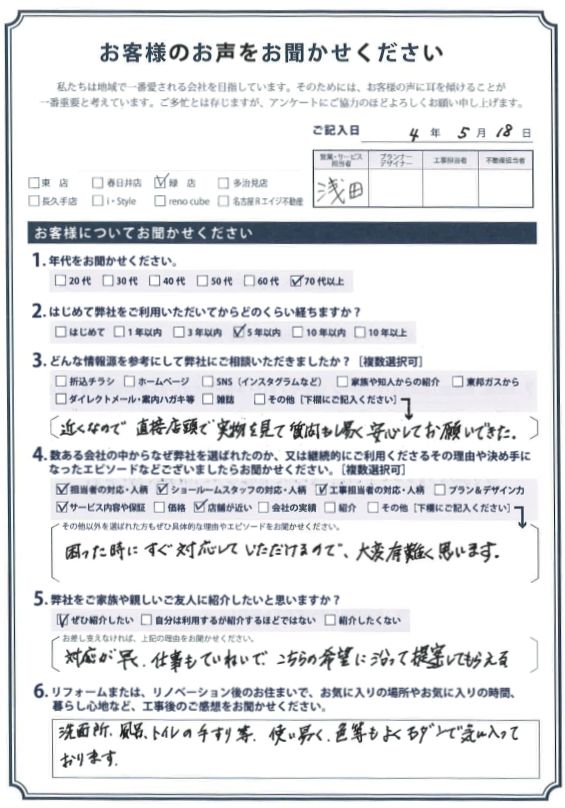 お客様のお声をお聞かせください
私たちは地域で一番愛される会社を目指しています。そのためには、お客様の声に耳を傾けることが
一番重要と考えています。ご多忙とは存じますが、アンケートにご協力のほどよろしくお願い申し上げます。
ご記入日 4 年 5 月 18 日
営業・サービス担当者 プランナーデザイナー 工事担当者 不動産担当者
浅田
□東 店 □春日井店 ☑緑 店 □多治見店
□長久手店 □i・Style □reno cube □名古屋Rエイジ不動産
お客様についてお聞かせください
1.年代をお聞かせください。
□20代 □30代 □40代 □50代 □60代 ☑70代以上
2.はじめて弊社をご利用いただいてからどのくらい経ちますか？
□はじめて □1年以内 □3年以内 ☑5年以内 □10年以内 □10年以上
3.どんな情報源を参考にして弊社にご相談いただきましたか？［複数選択可］
□折込チラシ □ホームページ □SNS（インスタグラムなど） □家族や知人からの紹介 □東邦ガスから
□ダイレクトメール・案内ハガキ等 □雑誌 □その他［下欄にご記入ください］
近くなので 直接店頭で実物を見て質問もし易く安心してお願いできた。
4.数ある会社の中からなぜ弊社を選ばれたのか、又は継続的にご利用くださるその理由や決め手に
なったエピソードなどございましたらお聞かせください。［複数選択可］
☑担当者の対応・人柄 ☑ショールームスタッフの対応・人柄 ☑工事担当者の対応・人柄 □プラン&デザイン力
☑サービス内容や保証 □価格 ☑店舗が近い □会社の実績 □紹介 □その他［下欄にご記入ください］
その他以外を選ばれた方もぜひ具体的な理由やエピソードをお聞かせください。
困った時にすぐ対応していただけるので、大変有難く思います。
5.弊社をご家族や親しいご友人に紹介したいと思いますか？
☑ぜひ紹介したい □自分は利用するが紹介するほどではない □紹介したくない
お差し支えなければ、上記の理由をお聞かせください。
対応が早く、仕事もていねいで、こちらの希望に沿って提案してもらえる
6.リフォームまたは、リノベーション後のお住まいで、お気に入りの場所やお気に入りの時間、
暮らし心地など、工事後のご感想をお聞かせください。
洗面所、風呂、トイレの手すり等、使い易く、色等もよくモダンで気に入って
おります。